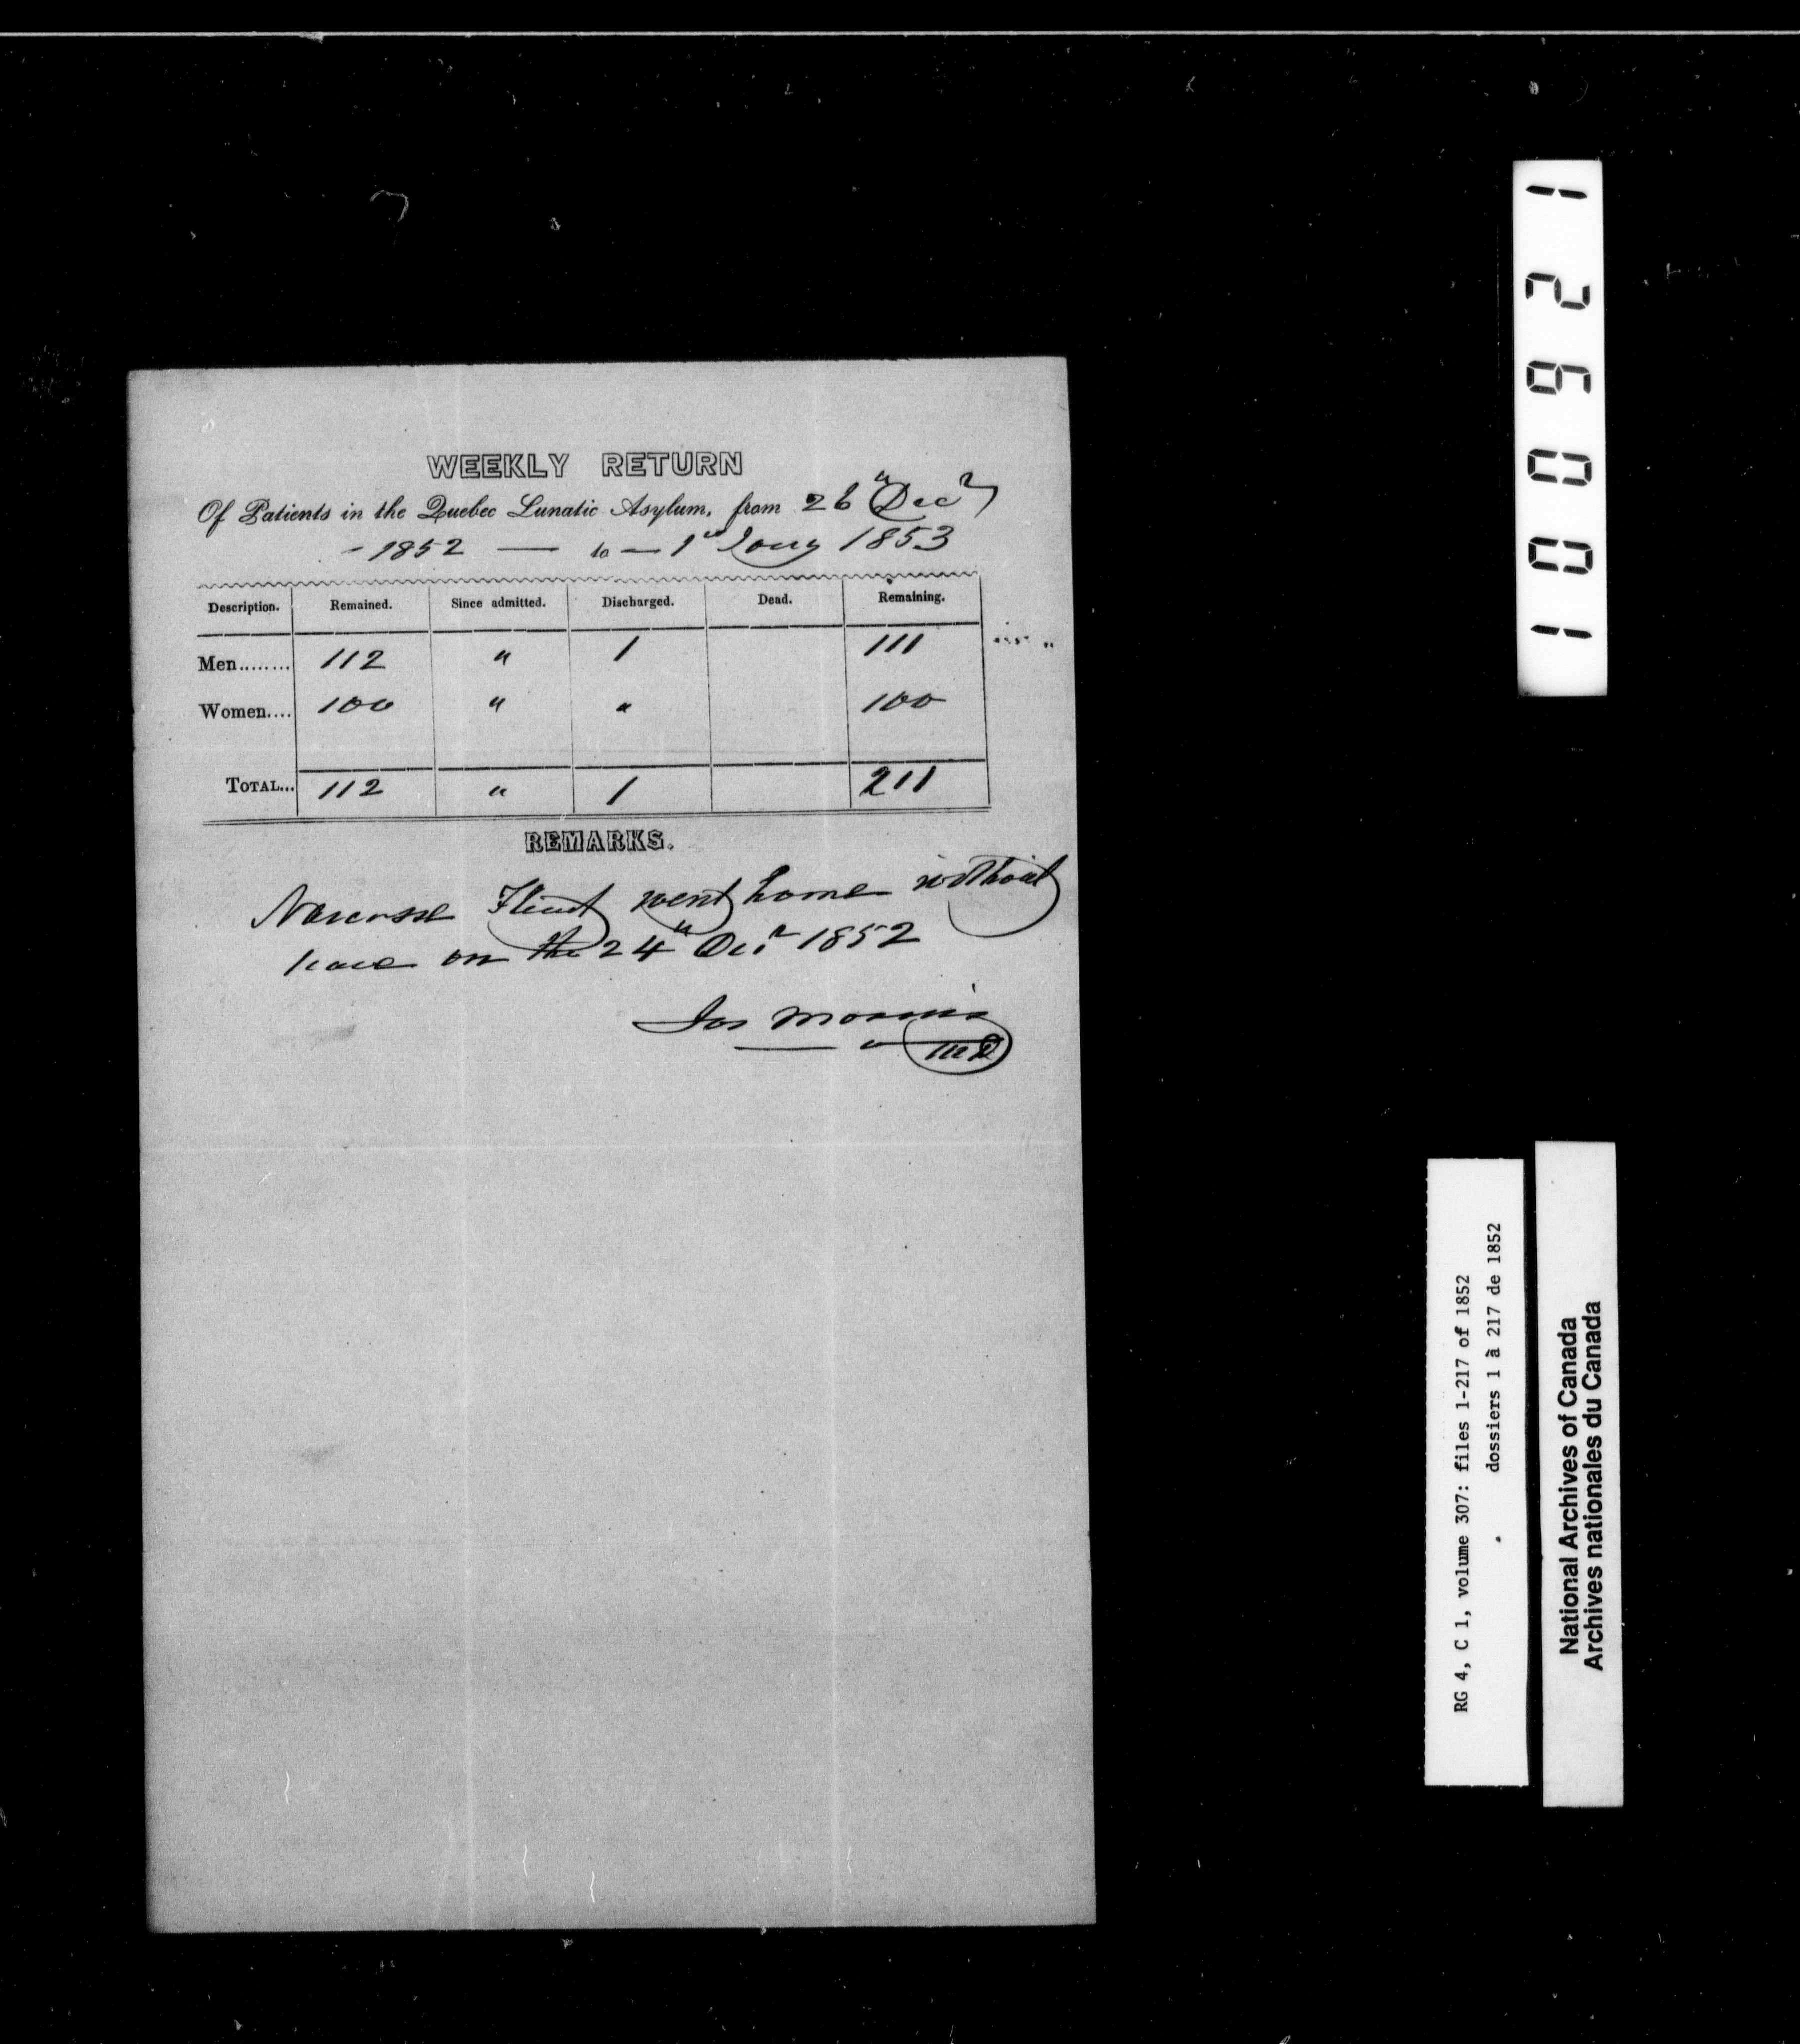 WEEKLY RETURN
Of Patients in the Quebec Lunatic Asylum, from 26" Decr
- 1852 — to — 1st Jany 1853
Description. Remained. Since admitted. Discharged. Dead. Remaining.
Men........ 112 " 1 111
Women.... 100 " " 100
TOTAL... 112 " 1 211
REMARKS.
went home without
leave on the 24" Decr 1852
Jos Morrin
MD
100921
RG 4, C 1, volume 307: files 1-217 of 1852
dossiers 1 à 217 de 1852
National Archives of Canada
Archives nationales du Canada